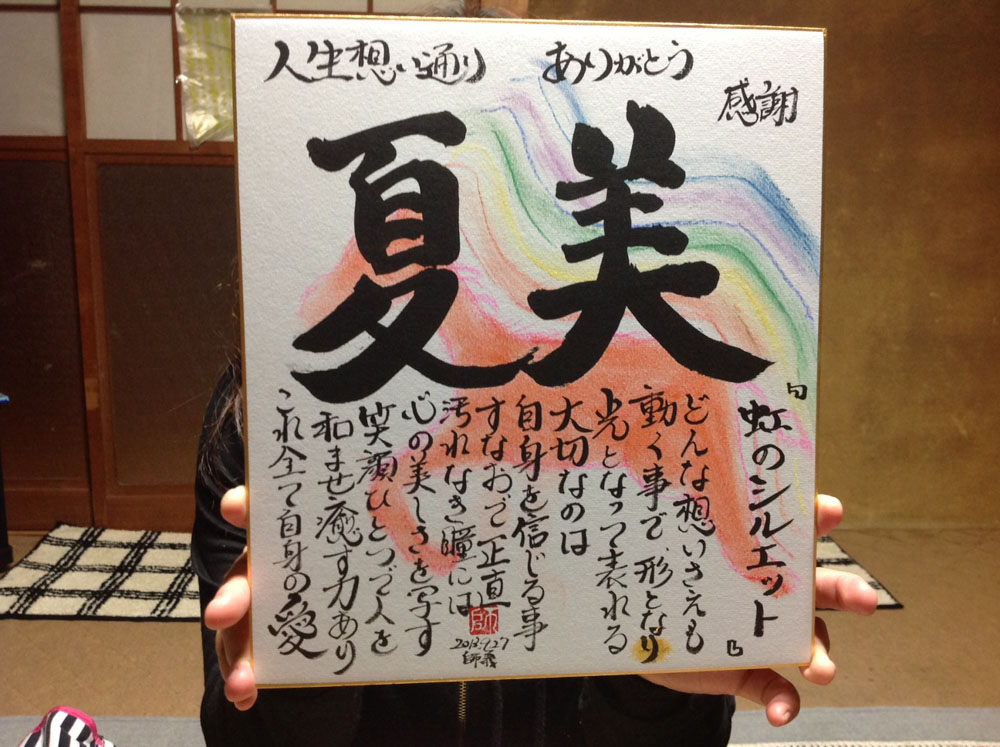 人生想い通り
ありがとう
感謝
夏美
『虹のシルエット』
どんな想いさえも
動く事で、形となり
光となって表れる
大切なのは
自身を信じる事
すなおで正直
汚れなき瞳には
心の美しさを写す
笑顔ひとつで人を
和ませ癒す力あり
これ全て自身の愛
師